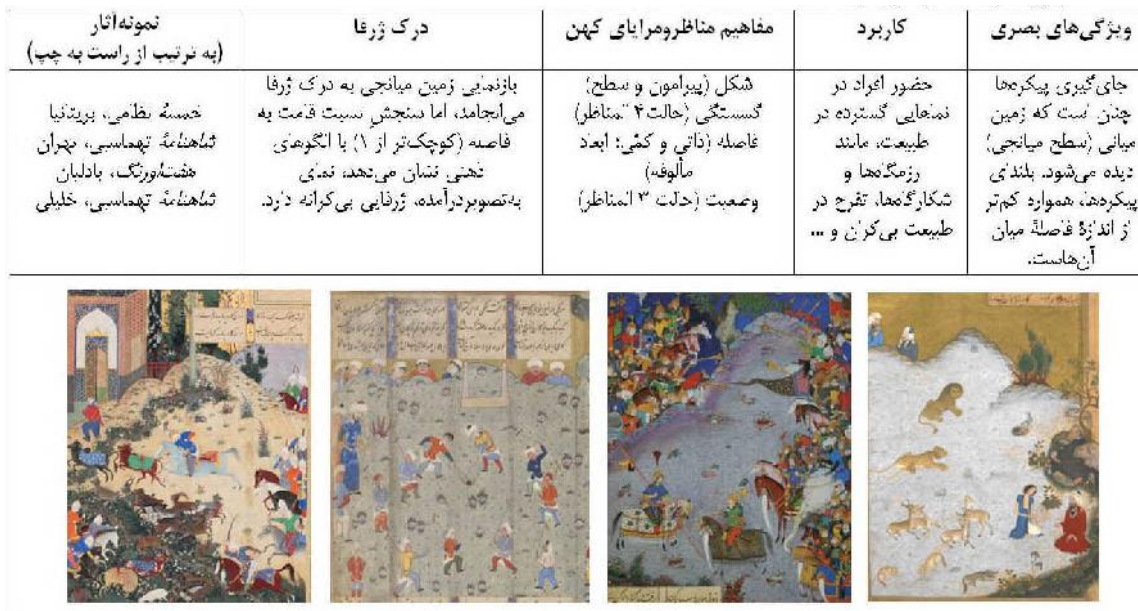 ویژگی‌های بصری
کاربرد
مفاهیم مناظرومرایای کهن
درک ژرفا
نمونه‌آثار
(به ترتیب از راست به چپ)
جای‌گیری پیکره‌ها
چنان است که زمین
میانی (سطح میانجی)
دیده می‌شود. بلندای
پیکره‌ها، همواره کم‌تر
از اندازهٔ فاصلهٔ میان
آن‌هاست.
حضور افراد در
نماهایی گسترده در
طبیعت، مانند
رزمگاه‌ها و
شکارگاه‌ها، تفرج در
طبیعت بی‌کران و ...
شکل (پیرامون و سطح)
گسستگی (حالت ۴ المناظر)
فاصله (ذاتی و کمّی؛ ابعاد
مألوفه)
وضعیت (حالت ۳ المناظر)
بازنمایی زمین میانجی به درک ژرفا
می‌انجامد، اما سنجش نسبت قامت به
فاصله (کوچک‌تر از ۱) با الگوهای
ذهنی نشان می‌دهد، نمای
به‌تصویردرآمده، ژرفایی بی‌کرانه دارد.
خمسهٔ نظامی، بریتانیا
شاهنامهٔ تهماسبی، تهران
هفت‌اورنگ، بادلیان
شاهنامهٔ تهماسبی، خلیلی